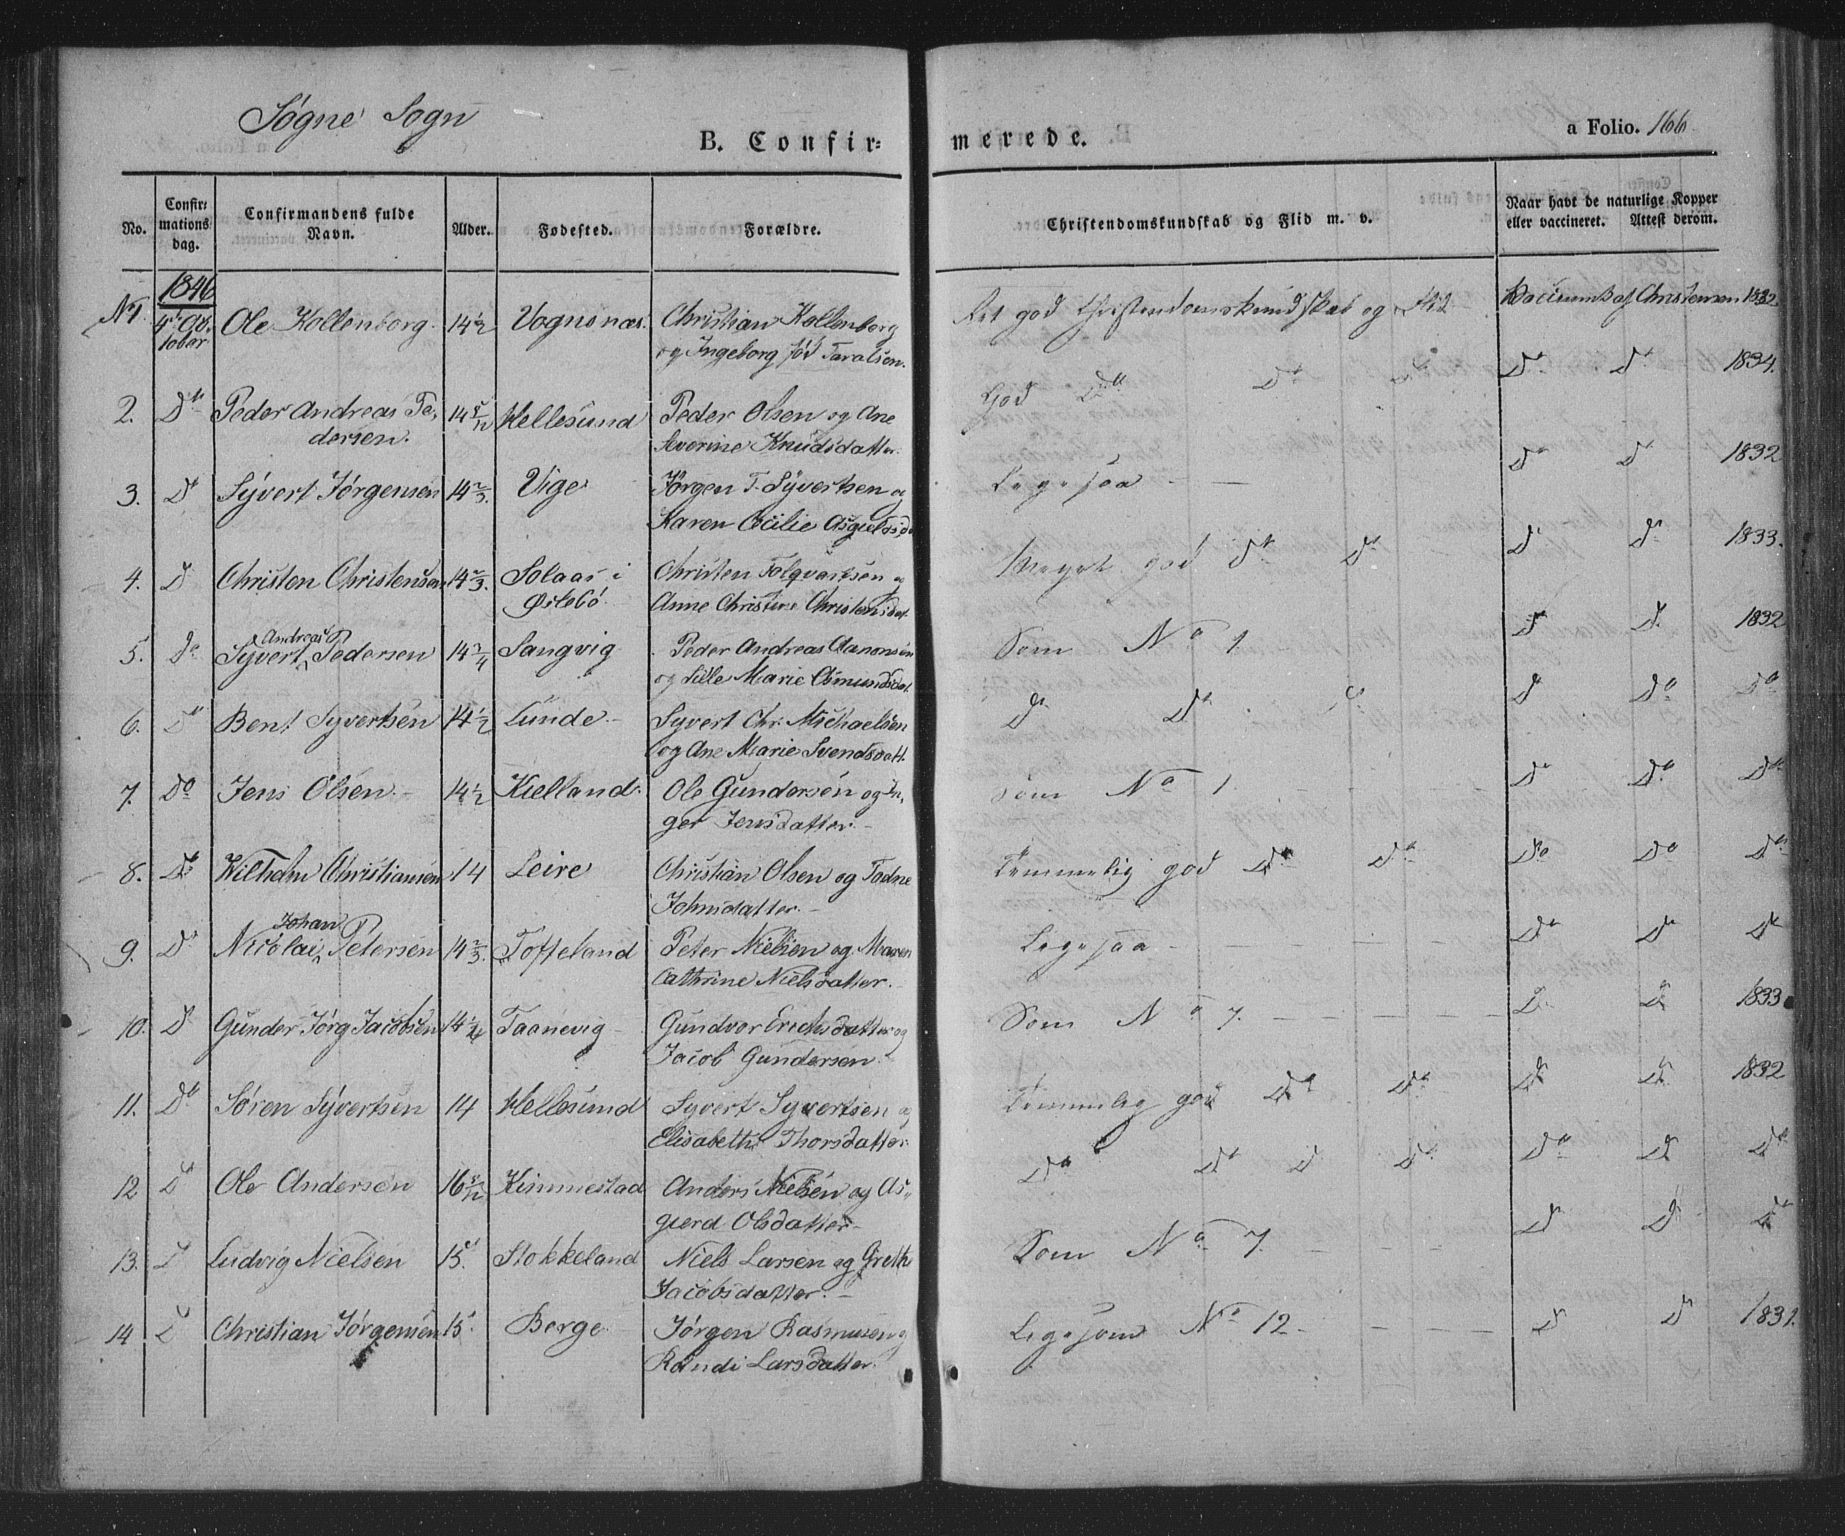 Søgne Sogn
B. Confir= merede.
a Folio. 166
No.
Confir=
mations
dag.
Confirmandens fulde
Navn.
Alder.
Fødested.
Forældre.
Christendomskundskab og Flid m. v.
Naar havt de naturlige Kopper
eller vaccineret. Attest derom.
1846
No 1. 4de Octobar Ole Hollenborg 14 1/2 Vognsnæs. Christian Hollenborg
og Ingeborg fød Taralsen.
Ret god Christendomskundskab og Flid Christensen 1832.
2. Do Peder Andreas Pe- 14 5/12 Hellesund Peder Olsen og Ane
dersen. Severine Knudsdatter.
God Do Do Do Do Do 1834.
3. Do Syvert Jørgensen 14 2/3. Vige Jørgen T. Syvertsen og
Karen Cecilie
Ligesaa Do Do 1832
4. D Christen Christensen 14 2/3. Solaas i Christen Folqvartsen og
Østebø. Anne Christine Christensdat.
Meget god Do Do Do Do 1833.
5. Do Syvert Andreas Pedersen 14 3/4 Sangvig Peder Andreas Aanonsen
og Lille Marie Asmundsdat.
Som No 1 Do D. 1832
6. Do Bent Syvertsen 14 1/2 Lunde Syvert Chr. Michaelsen
og Ane Marie Svendsdatt.
Do Do Do Do Do Do
7. Do Jens Olsen 14 1/2 Kielland. Ole Gundersen og In,
ger Jensdatter.
Som No 1 Do Do Do
8. Do Wilhelm Christiansen 14 Leire Christian Olsen og Todne
Johnsdatter.
Temmelig god Do Do Do Do Do
9. Do Nicolai Johan Petersen 14 2/3. Tofteland Peter Nielsen og Maren
Cathrine Nielsdatter.
Ligesaa Do Do Do
10. D Gunder Jørg Jacobsen 14 Taanevig Gundvor Erichsdatter og
Jacob Gundersen.
Som No 7. D. D. 1833
11. Do Søren Syvertsen 14 Hellesund Syvert Syvertsen og
Elisabeth Thorsdatter.
Temmelig god Do Do Do D. 1832
12 Do Ole Andersen 16 5/12 Kimmestad Anders Nielsen og As-
gierd Olsdatter
Do Do D Do Do D Do
13. D Ludvig Nielsen 15. Stokkeland Niels Larsen og Grethe
Jacobsdatter.
Som No 7. D D Do
14 D Christian Jørgensen 15. Berge Jørgen Rasmusen og
Randi Larsdatter.
Ligesom No 12. D D 1831.